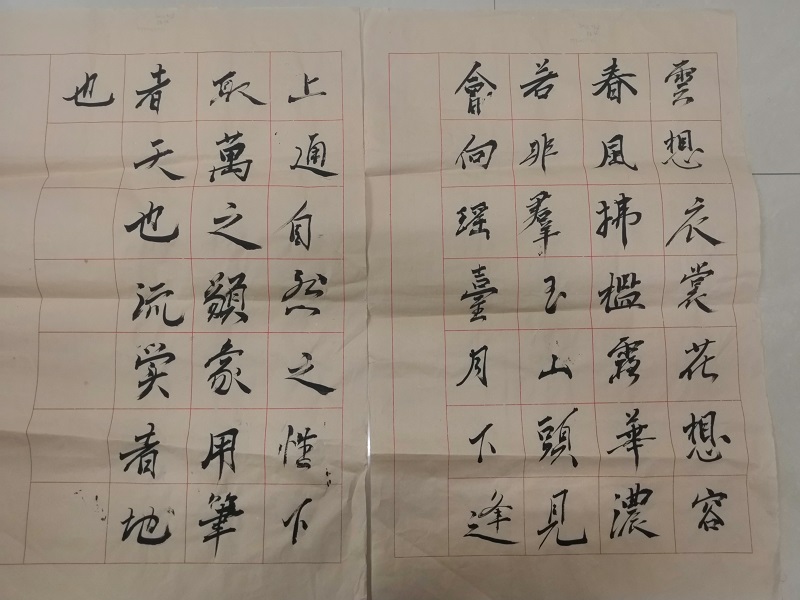 雲想衣裳花想容
春風拂檻露華濃
若非羣玉山頭見
會向瑶臺月下逢
上通自然之性下
取萬之類象用筆
者天也流美者地
也